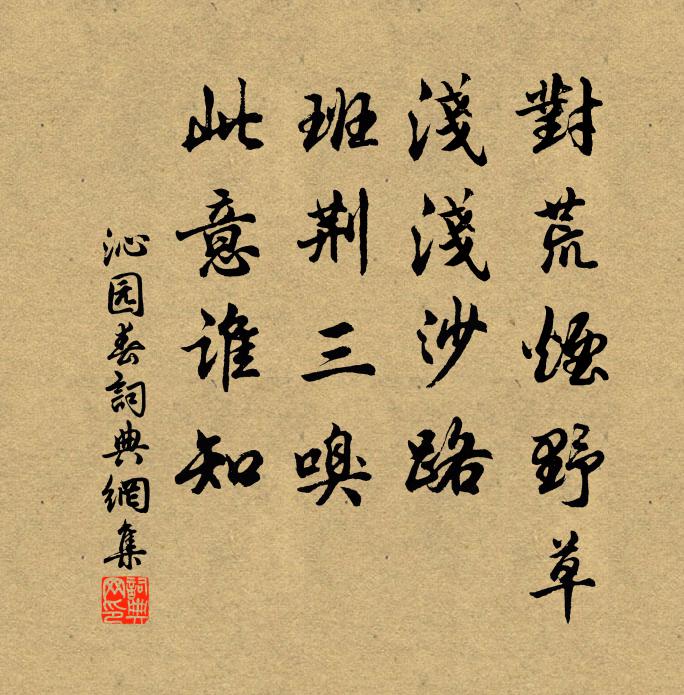 對荒煙野草
淺淺沙路
班荆三嗅
此意谁知
沁园春詞典網集
詞典網印